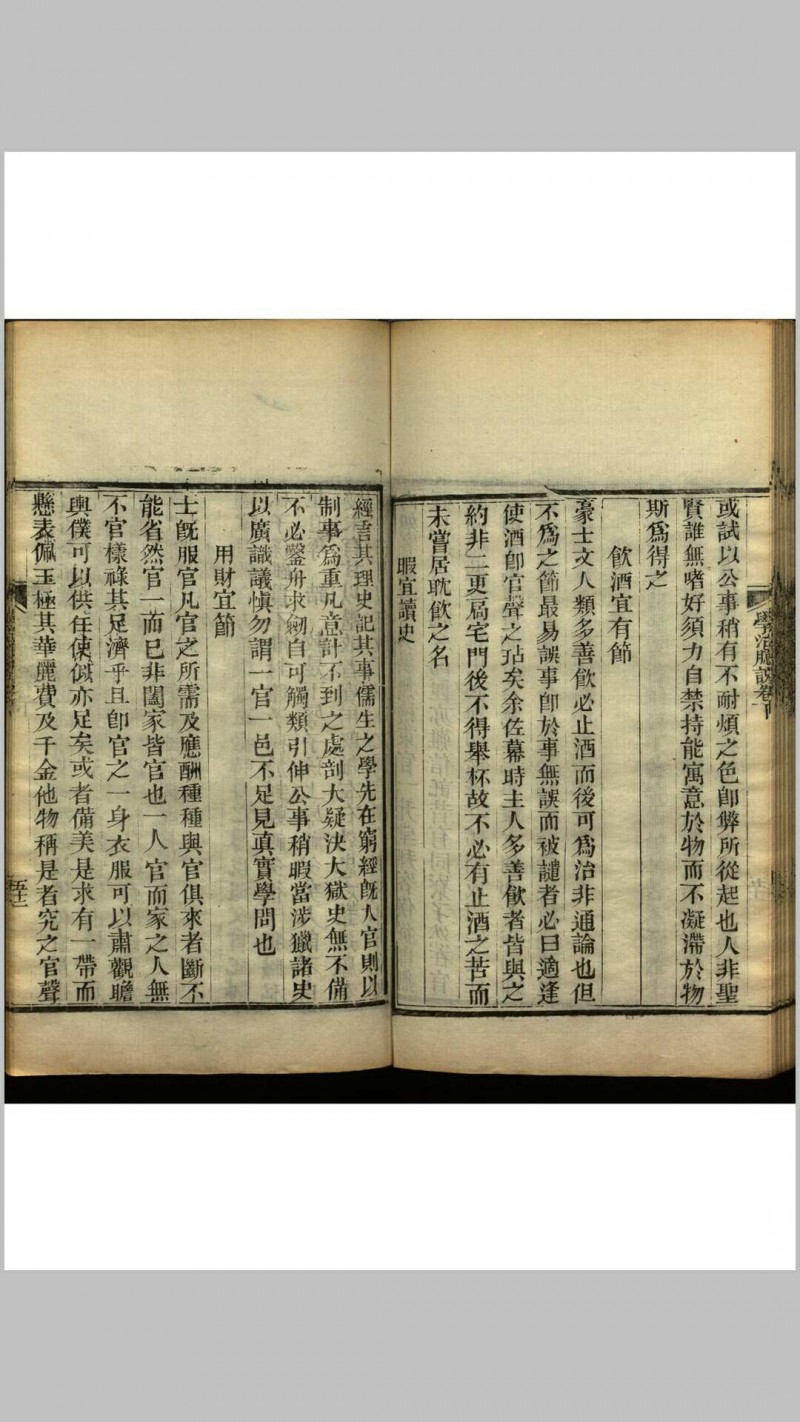 或試以公事稍有不耐煩之色卽弊所從起也人非聖
賢誰無嗜好須力自禁持能寓意於物而不凝滯於物
斯爲得之
飮酒宜有節
豪士文人類多善飮必止酒而後可爲治非通論也但
不爲之節最易誤事卽於事無誤而被譴者必曰適逢
使酒卽官聲之玷矣余佐幕時主人多善飮者皆與之
約非二更扃宅門後不得舉杯故不必有止酒之苦而
未嘗居耽飮之名
暇宜讀史
經言其理史記其事儒生之學先在窮經旣入官則以
制事爲重凡意計不到之處剖大疑決大獄史無不備
不必鑿舟求劒自可觸類引伸公事稍暇當涉獵諸史
以廣識議愼勿謂一官一邑不足見眞實學問也
用財宜節
士旣服官凡官之所需及應酬種種與官俱來者斷不
能省然官一而已非闔家皆官也一人官而家之人無
不官樣祿其足濟乎且卽官之一身衣服可以肅觀瞻
輿僕可以供任使儗亦足矣或者備美是求有一帶而
懸表佩玉極其華麗費及千金他物稱是者究之官聲
學治臆說卷下